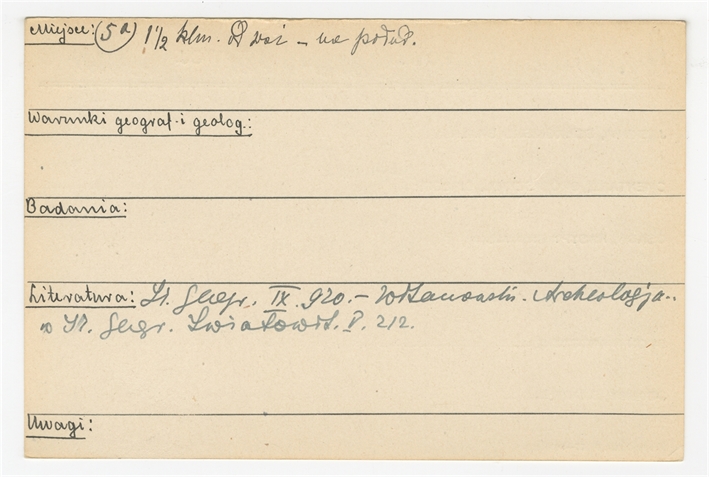 Miejsce: (5a) 1 1/2 klm. od wsi – na połud.
Warunki geograf. i geolog.:
Badania:
Literatura: Sł. Geogr. IX. 920. – Archeologja
w Sł. Geogr. Światowit. V. 212.
Uwagi: